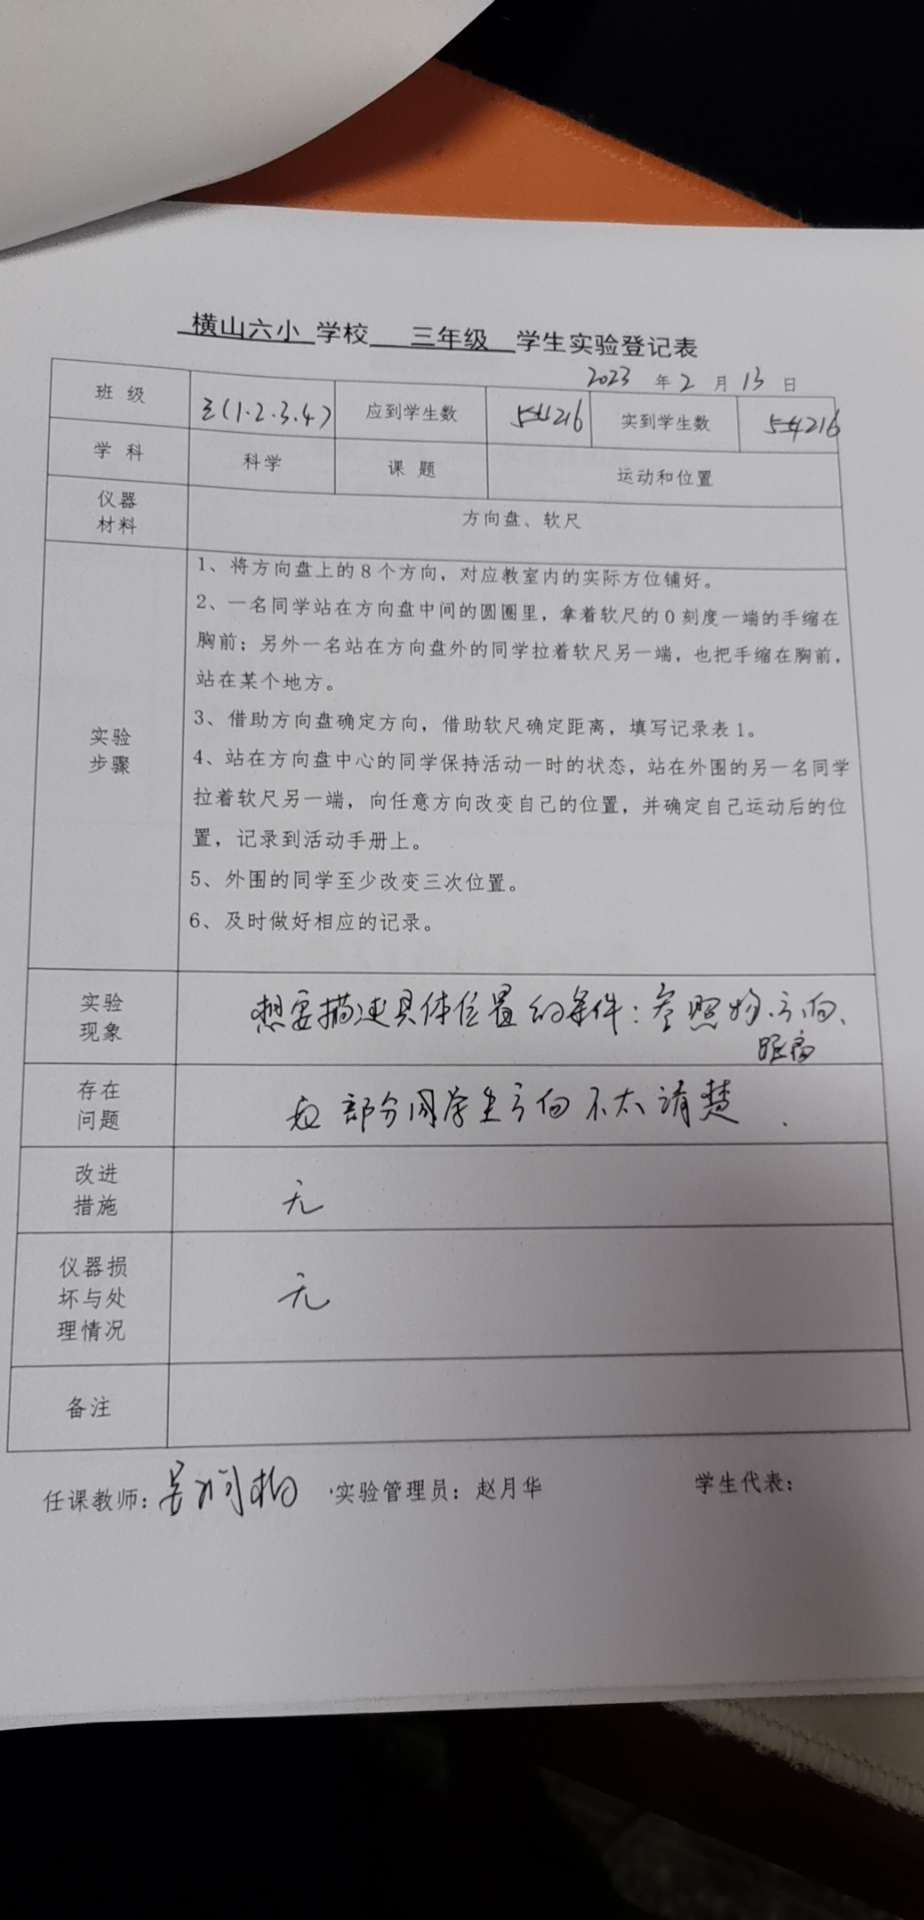 横山六小 学校 三年级 学生实验登记表
2023 年 2 月 13 日
班 级 三(1.2.3.4) 应到学生数 216 实到学生数 216
学 科 科学 课 题 运动和位置
仪器
材料
方向盘、软尺
1、将方向盘上的8个方向，对应教室内的实际方位铺好。
2、一名同学站在方向盘中间的圆圈里，拿着软尺的0刻度一端的手缩在
胸前；另外一名站在方向盘外的同学拉着软尺另一端，也把手缩在胸前，
站在某个地方。
3、借助方向盘确定方向，借助软尺确定距离，填写记录表1。
实验
步骤
4、站在方向盘中心的同学保持活动一时的状态，站在外围的另一名同学
拉着软尺另一端，向任意方向改变自己的位置，并确定自己运动后的位
置，记录到活动手册上。
5、外围的同学至少改变三次位置。
6、及时做好相应的记录。
实验
现象
想要描述具体位置的条件：参照物、方向、
距离
存在
问题
部分同学生方向不太清楚.
改进
措施
无
仪器损
坏与处
理情况
无
备注
任课教师： 实验管理员：赵月华 学生代表：